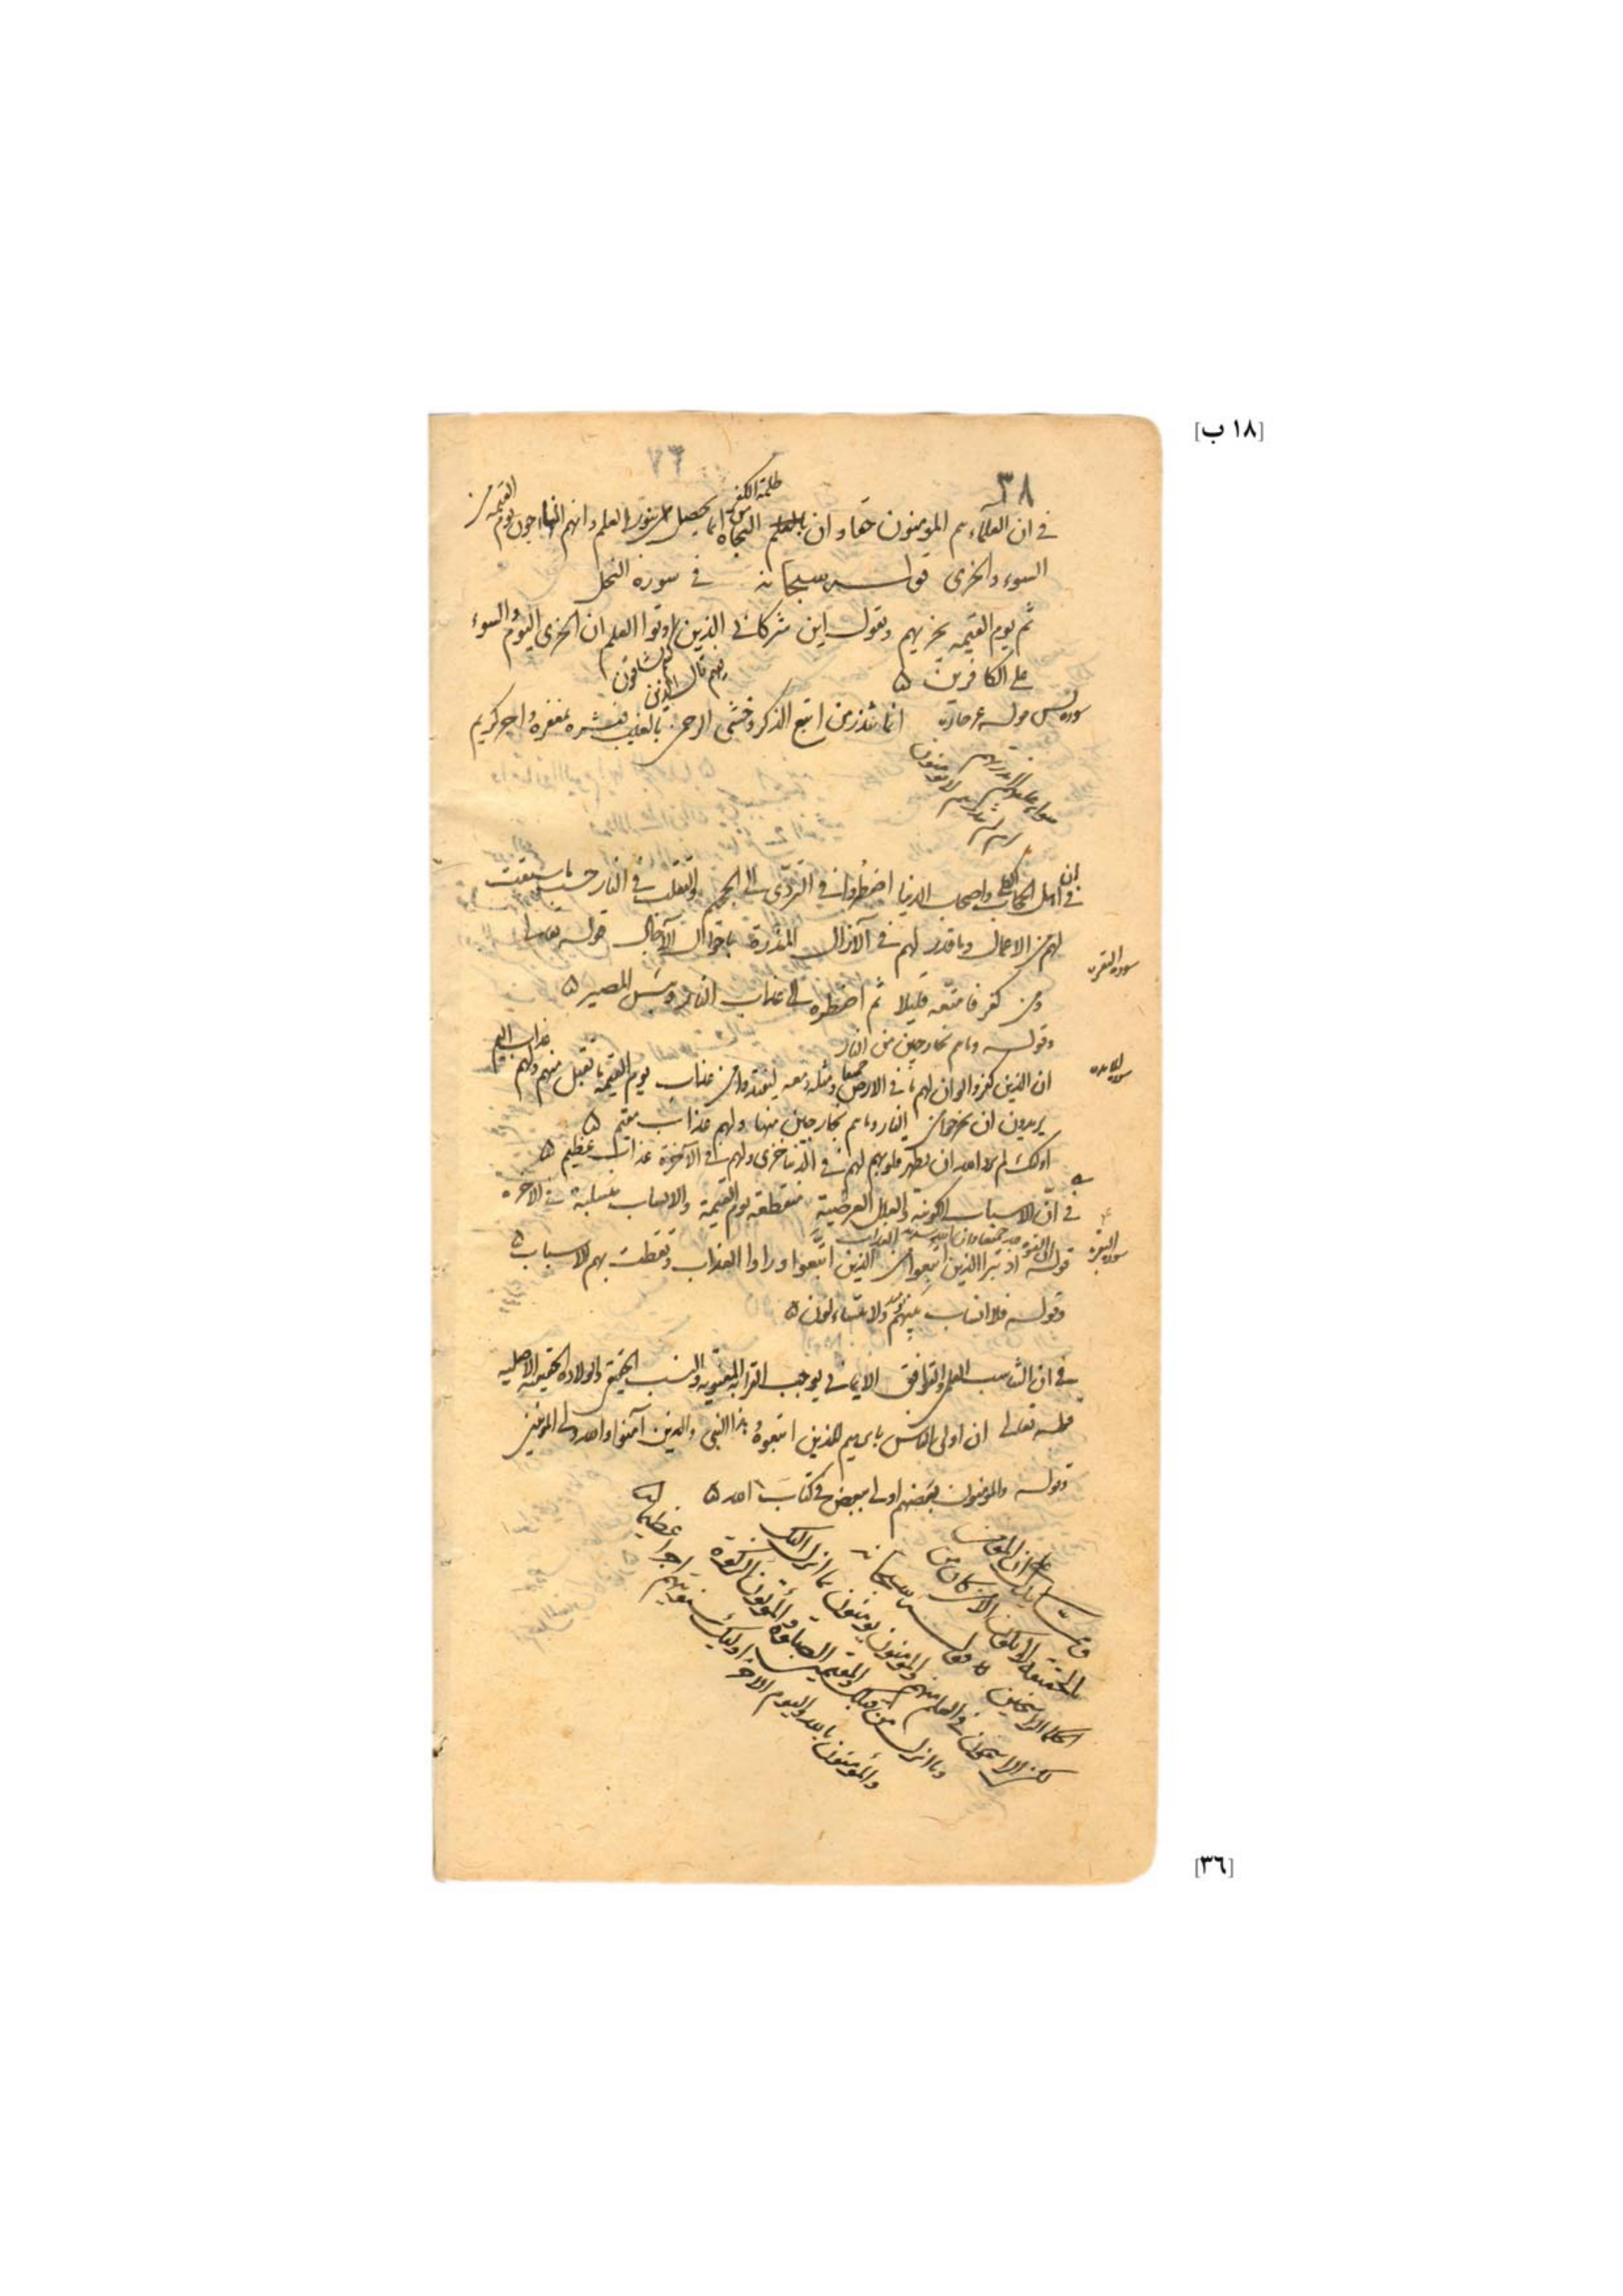 [١٨ ب]
٧٦
٣٨
ظلمة الكفر
في ان العلماء هم المومنون حقا و ان النجاة من انما يحصل بنور العلم و انهم الناجون يوم القيمة من
السوء و الخزى قوله سبحانه في سورة النحل
ثم يوم القيمة يخزيهم و يقول اين شركائي الذين كنتم تشاقون فيهم قال الذين اوتوا العلم ان الخزى اليوم و السوء
على الكافرين ۵
سورة يس قوله انما تنذر من اتبع الذكر و خشى الرحمن بالغيب فبشره بمغفرة و اجر كريم
سواء عليهم ءانذرتهم
ام لم تنذرهم لا يومنون
في ان اهل الحجاب و اصحاب الدنيا اضطروا في التردى الى الجحيم و التقلب في النار حسب ما سبقت
لهم من الاعمال و ما قدر لهم في الآزال قوله تعالى
سورة البقرة
و من كفر فامتعه قليلا ثم اضطره الى عذاب النار و بئس المصير ۵
و قوله و ما هم بخارجين من النار
سورة المائدة
ان الذين كفروا لو ان لهم ما في الارض جميعا و مثله معه ليفتدوا من عذاب يوم القيمة ما تقبل منهم و لهم عذاب اليم
يريدون ان يخرجوا من النار و ما هم بخارجين منها و لهم عذاب مقيم ۵
اولئك لم يرد الله ان يطهر قلوبهم لهم في الدنيا خزى و لهم في الآخرة عذاب عظيم ۵
في ان الاسباب الكونية و العلل العرضية منقطعة يوم القيمة و الانساب منسلبة في الآخرة
سورة البقرة
ان القوة لله جميعا و ان الله شديد العذاب
قوله اذ تبرأ الذين اتبعوا من الذين اتبعوا و راوا العذاب و تقطعت بهم الاسباب ۵
و قوله فلا انساب بينهم يومئذ و لا يتساءلون ۵
في ان التناسب العلمى و التوافق الايمانى يوجب القرابة المعنوية و النسب الحقيقى و الولادة الحقيقية الاصلية
قوله تعالى ان اولى الناس بابرهيم للذين اتبعوه و هذا النبى و الذين آمنوا و الله ولى المومنين
و قوله و المومنون بعضهم اولى ببعض في كتاب الله ۵
و مما يدل على ان المؤمن
بالحقيقة لا يكون الا من كان من
الحكماء الراسخين ۵ قوله سبحانه
لكن الراسخون في العلم منهم و المؤمنون يومنون بما انزل اليك
و ما انزل من قبلك و المقيمين الصلوة و المؤتون الزكوة
و المؤمنون بالله و اليوم الآخر اولئك سنؤتيهم اجرا عظيما ۵
[٣٦]